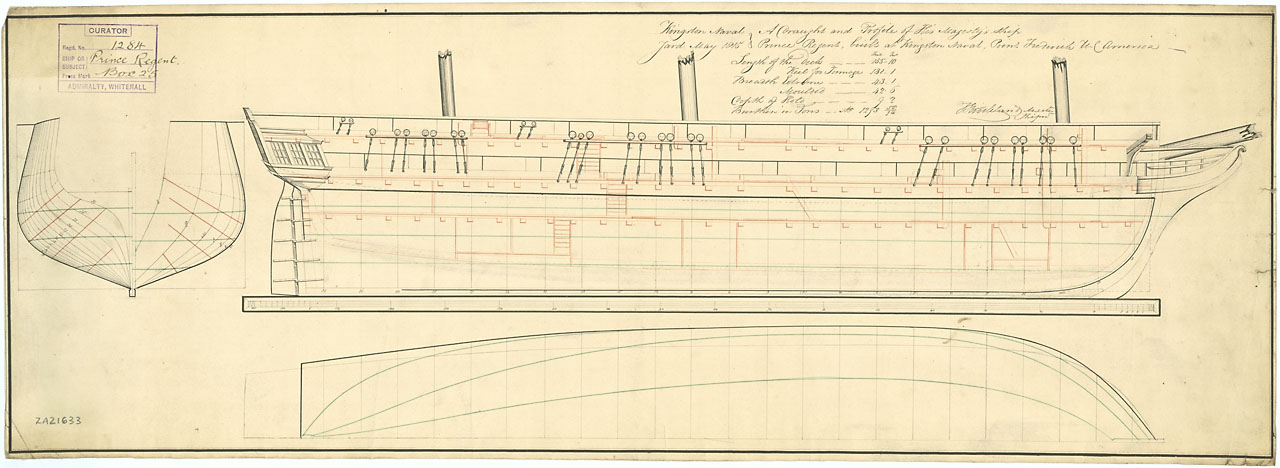 CURATOR
Regd. No. 1284
SHIP OR SUBJECT Prince Regent.
From Port Box 25
ADMIRALTY, WHITEHALL
Kingston Naval Yard May 1815
A Draught and Profile of His Majesty's Ship
Prince Regent, built at Kingston Naval, Point Frederick
Length of the Deck 155 10
Keel for Tonnage 131 1
Breadth Extreme 43 1
Moulded 42 6
Depth of Hold 9 2
Burthen in Tons
ZAZ1633